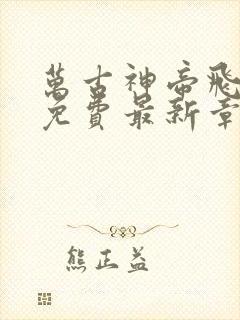 萬古神帝飛
免費最新章
熊正益